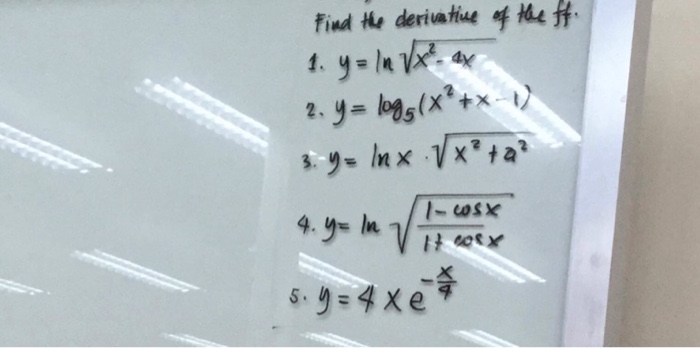 Find the derivative of the ff.
1. y = ln √(x² - 4x)
2. y = log₅(x² + x - 1)
3. y = ln x · √(x² + a²)
4. y = ln √((1 - cosx)/(1 + cosx))
5. y = 4xe^(-x/4)